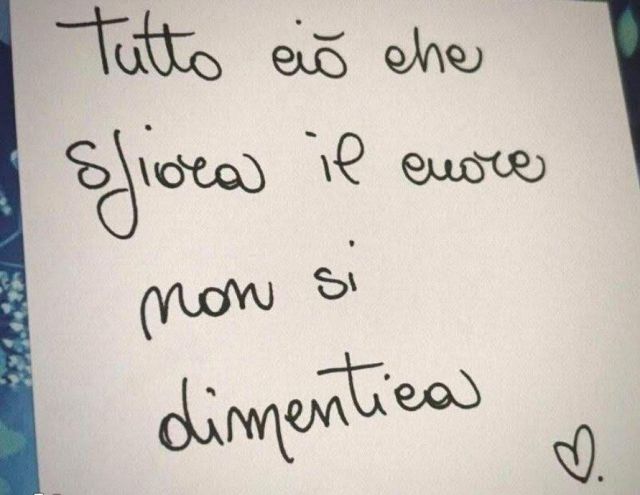 Tutto ciò che
sfiora il cuore
non si
dimentica